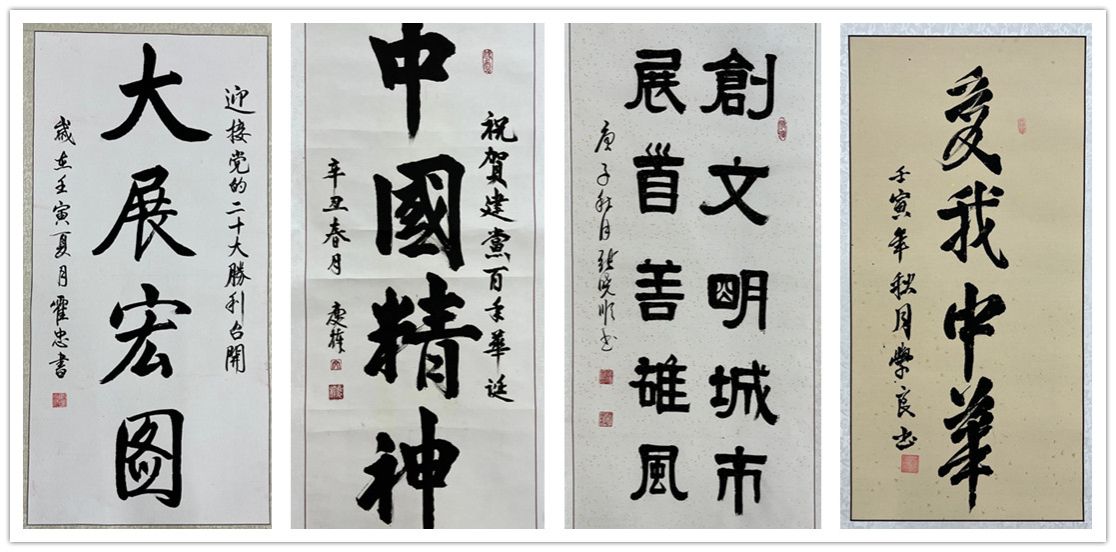 迎接党的二十大勝利召開
大展宏图
歲在壬寅夏月霍忠書
祝賀建黨百年華诞
中國精神
辛丑春月 慶
創文明城市
展首善雄風
庚子秋月张晓顺书
爱我中華
壬寅年秋月學良书